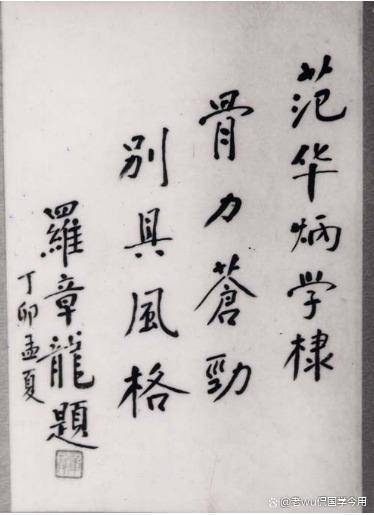 范华炳学棣
骨力蒼勁
别具風格
羅章龍題
丁卯孟夏
@老wu侃国学今用